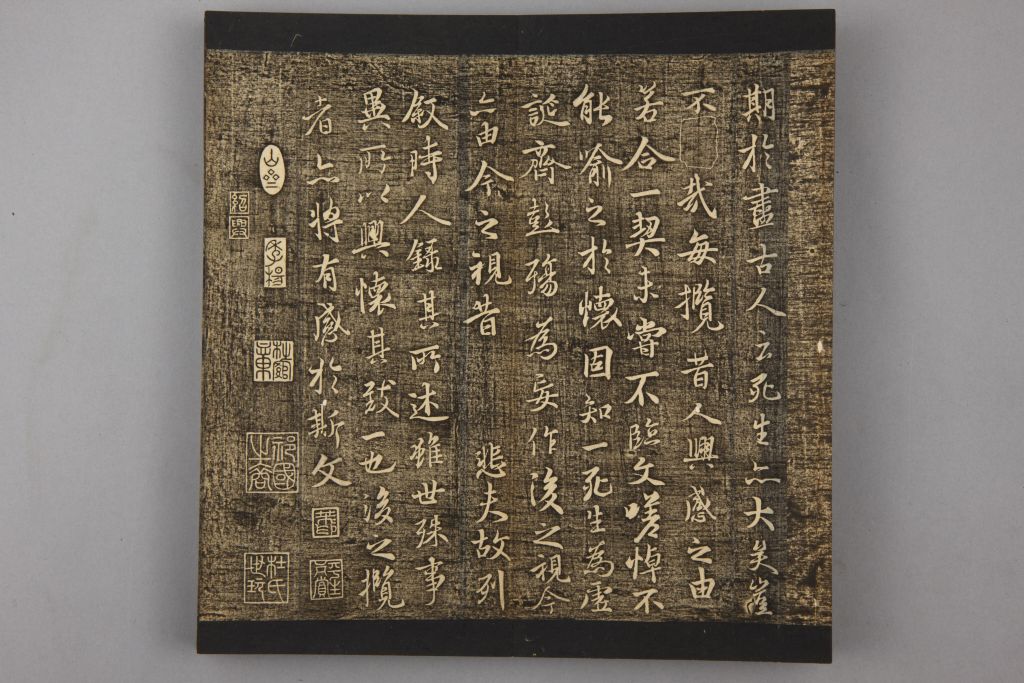 期於盡古人云死生亦大矣豈
不哉每攬昔人興感之由
若合一契未嘗不臨文嗟悼不
能喻之於懷固知一死生為虛
誕齊彭殤為妄作後之視今
亦由今之視昔悲夫故列
敘時人錄其所述雖世殊事
異所以興懷其致一也後之攬
者亦將有感於斯文
紹興
祁國之裔